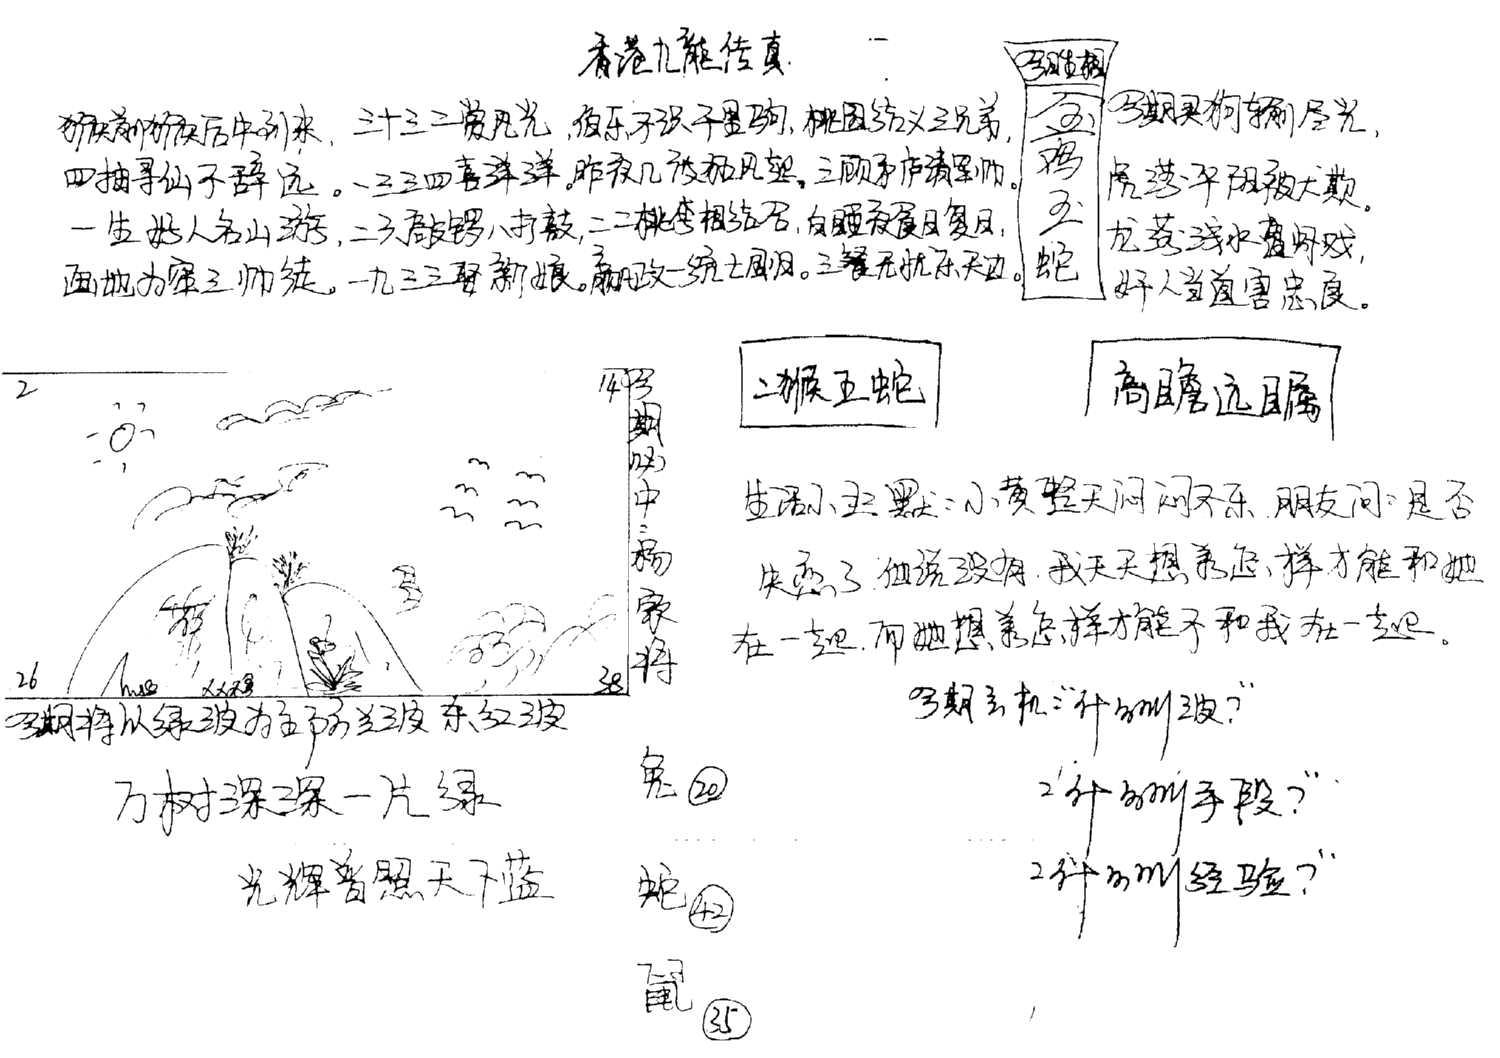 香港九龍传真
猴前猴后中到来，三十三二赏月光，伯乐不识千里驹，桃园结义三兄弟，
四抽寻仙不辞远。一三三四喜洋洋。昨夜几波招风起。三顾矛庐请军帅。
一生好人名山游，二六敲锣八打鼓，二二桃李相结召，白睡夜食日复日，
画地为牢三帅徒。一九三三娶新娘。嬴政一统七国归。三餐无忧乐天边。
今期生相
五鸡五蛇
今期买狗输尽光，
虎落平阳被犬欺。
龙落浅水遭虾戏，
奸人当道害忠良。
二猴五蛇
高瞻远瞩
2
14
26
38
今期必中：杨家将
今期将以绿波为主 防兰波 杀红波
万树深深一片绿
光辉普照天下蓝
兔 20
蛇 42
鼠 35
生活小幽默：小黄整天闷闷不乐，朋友问：是否
失恋了，他说没有，我天天想着怎样才能和她
在一起，而她想着怎样才能不和我在一起。
今期玄机：“什么叫波？”
“什么叫手段？”
“什么叫经验？”